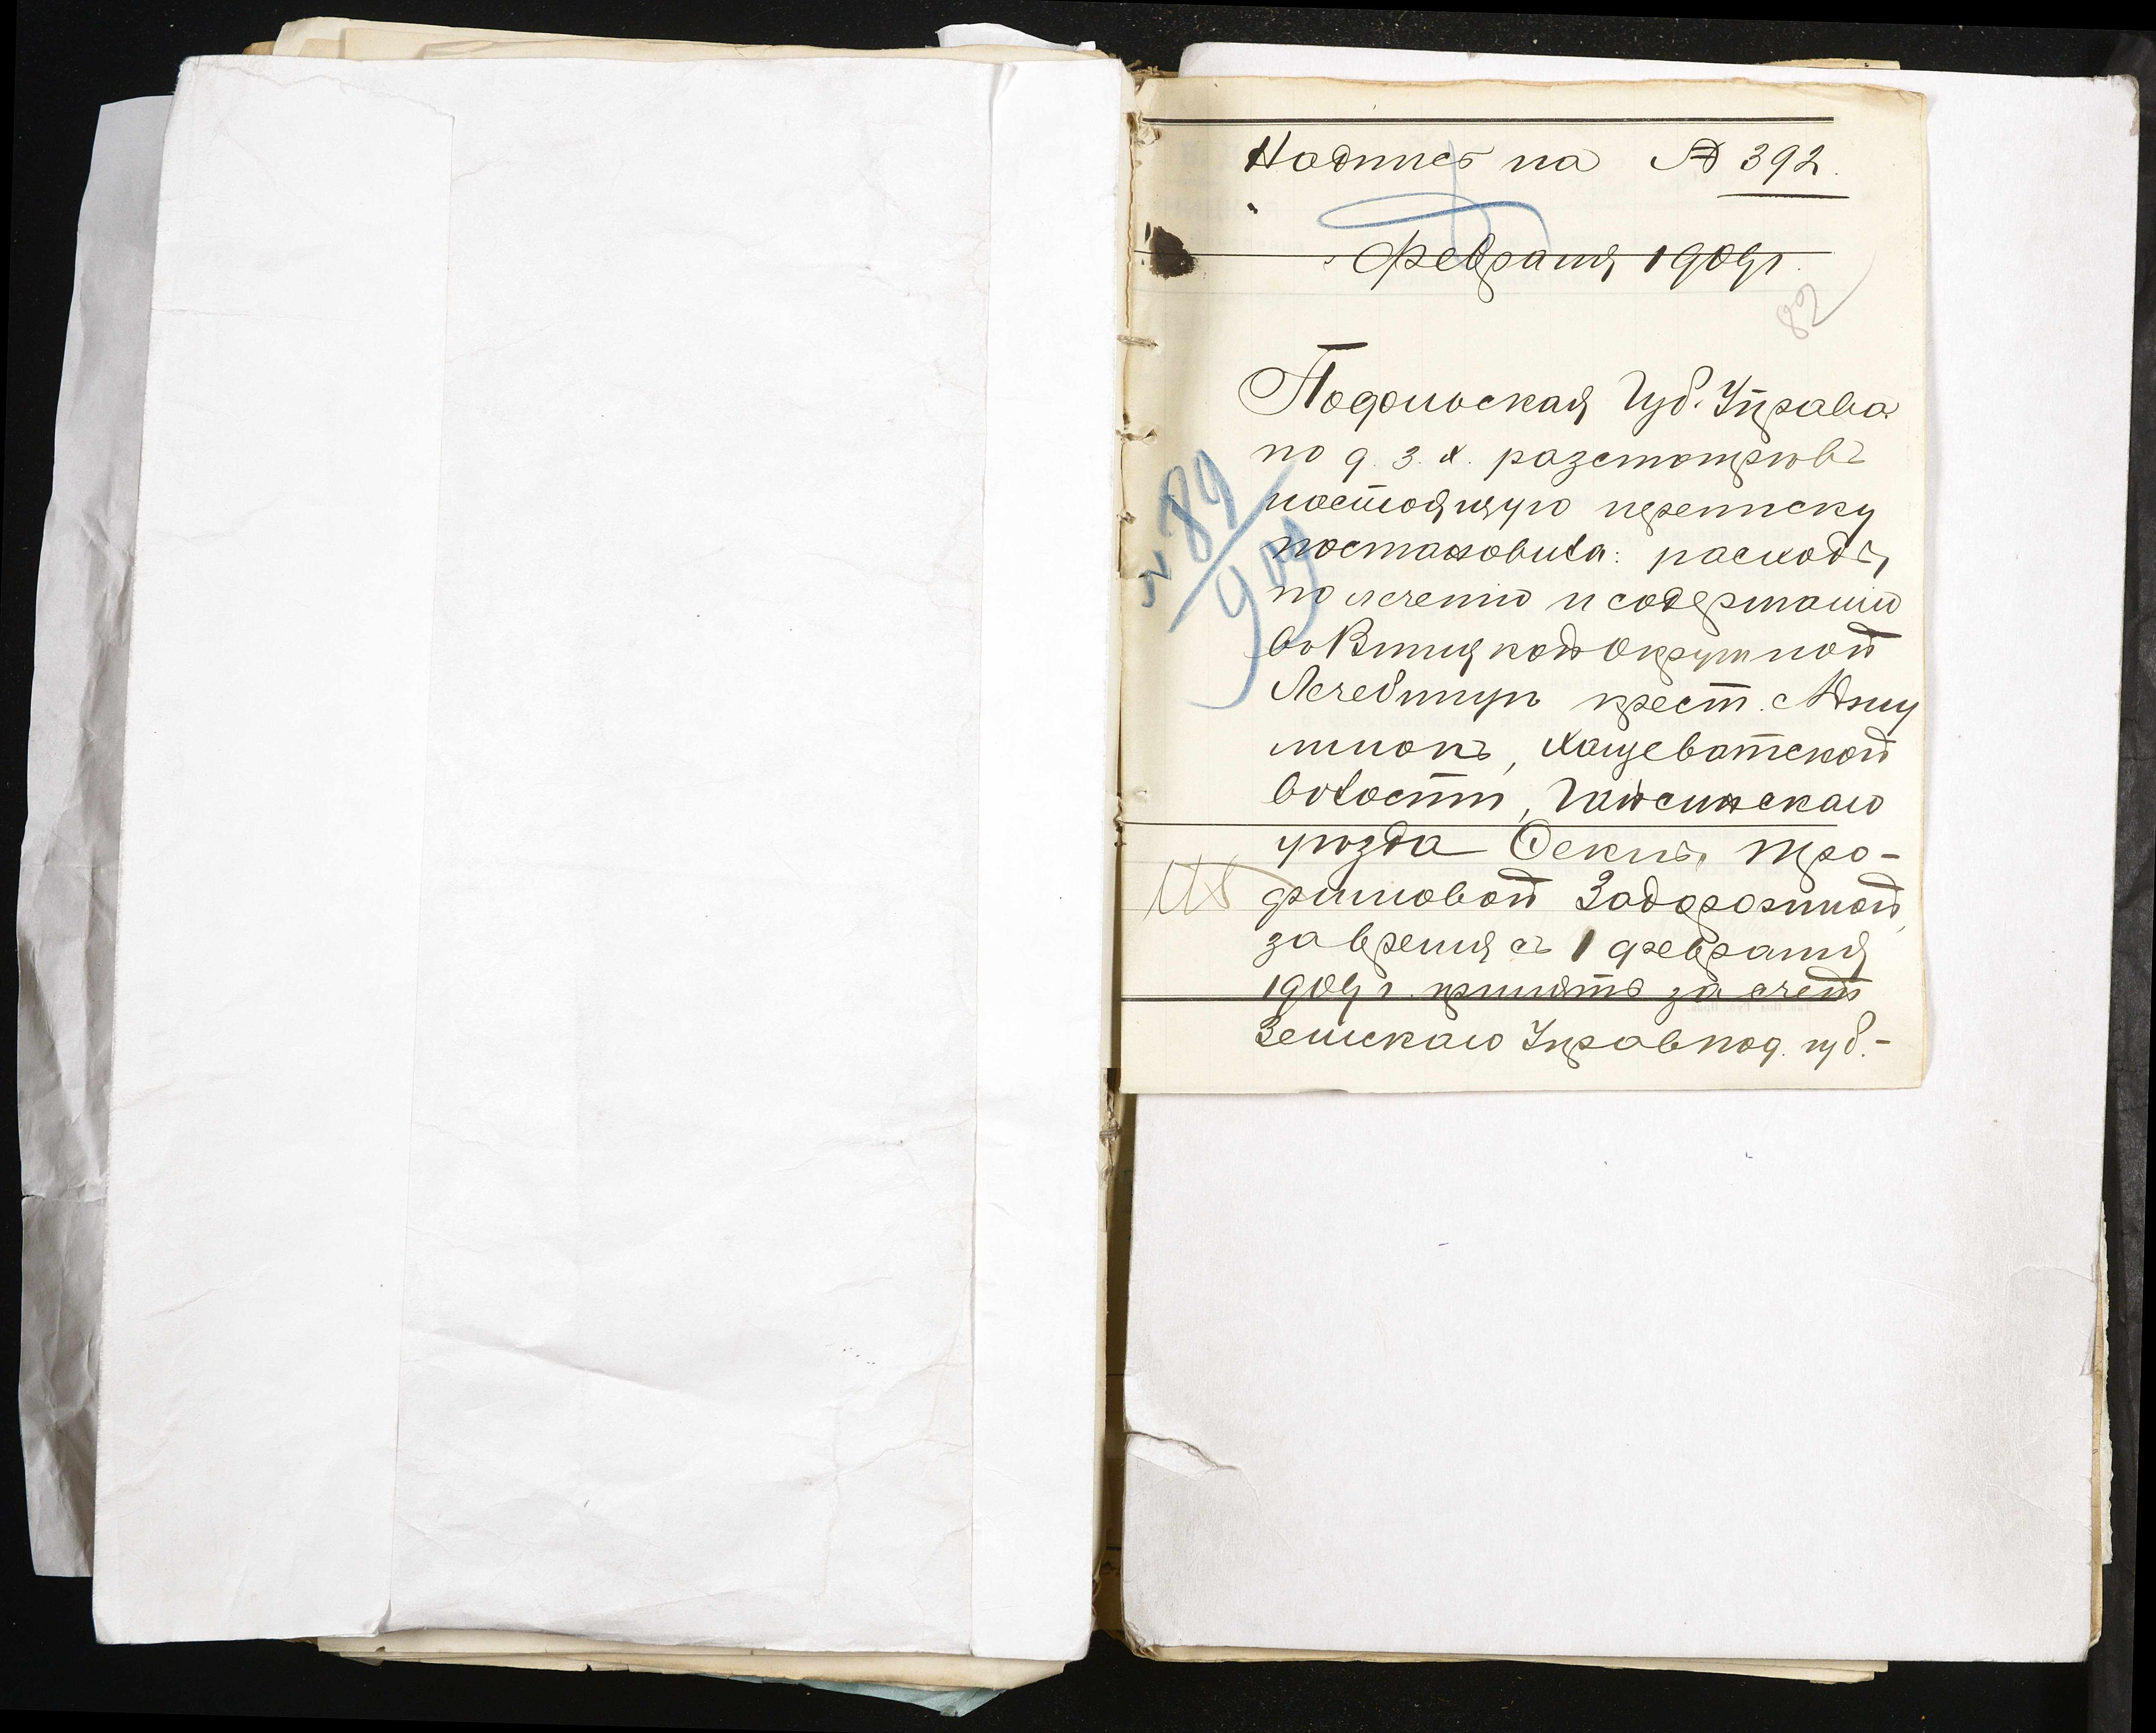 Надпись на № 392.
февраля 1909 г.
82
Подольская Губ. Управа
по д. з. х. разсмотрѣвъ
настоящую переписку
постановила: расходъ,
№ 89/909
по леченію и содержанію
во Винницкой Окружной
Лечебницѣ крест.
Хащеватской
волости, Гайсинскаго
уѣзда Феклы Тро-
фимовой Задорожной,
за время съ 1 февраля
1909 г. принять за счетъ
Земскаго Управ под. губ.-